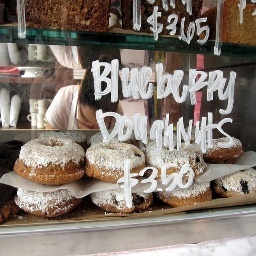 $3.65
Blueberry
Doughnuts
$3.50